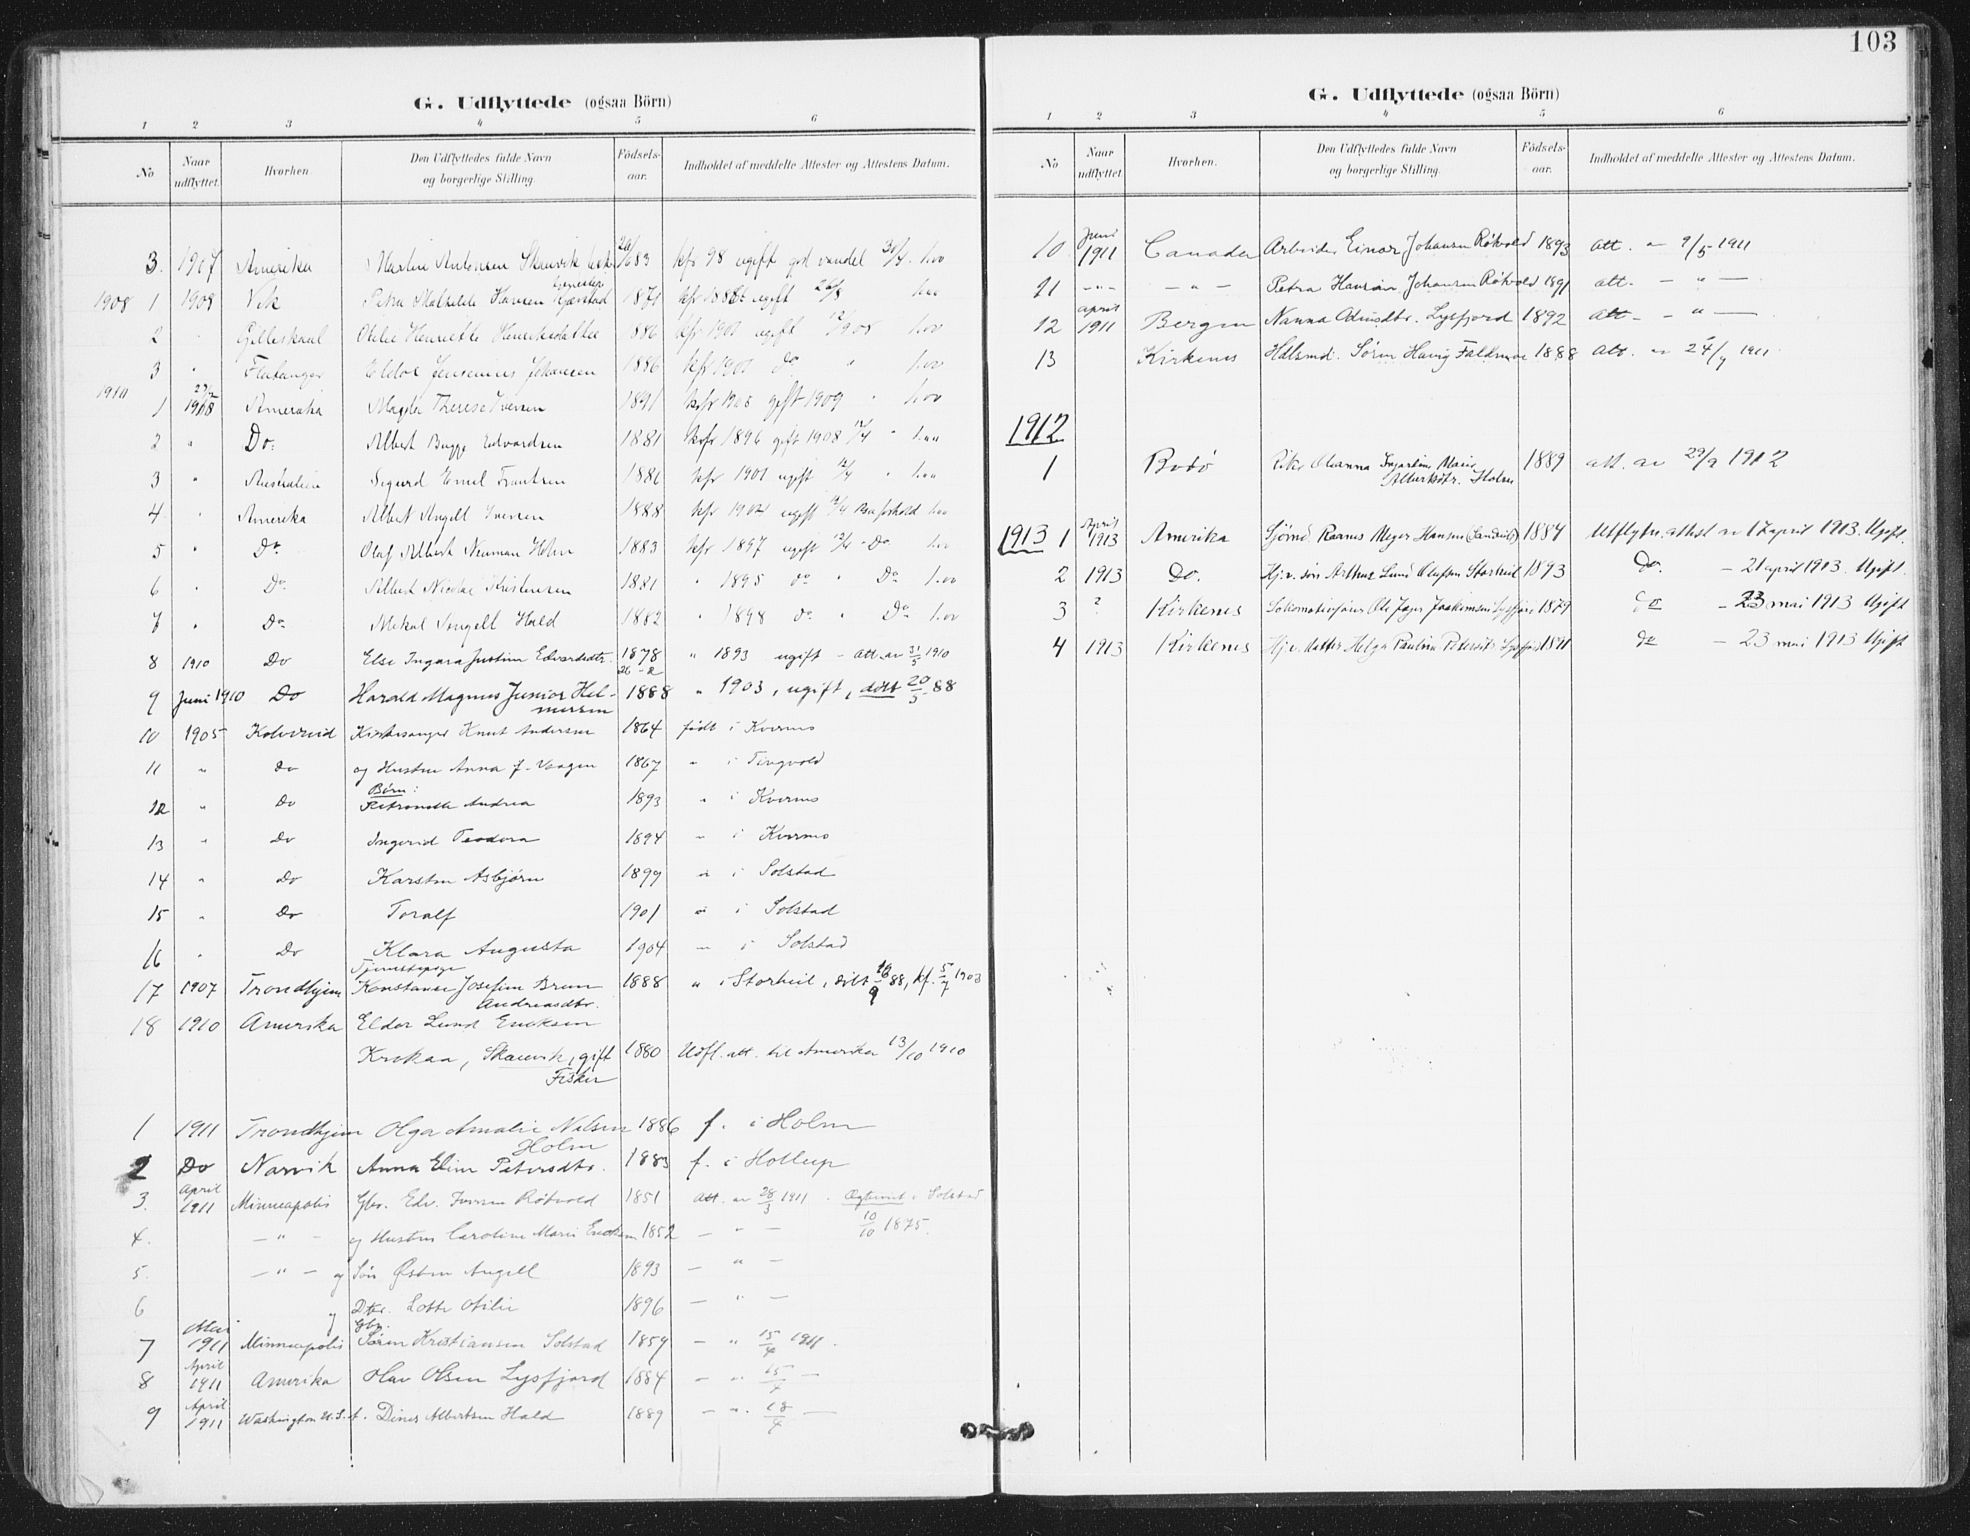 103
G. Udflyttede (ogsaa Börn)
1 2 3 4 5 6
No Naar udflyttet. Hvorhen Den Udflyttedes fulde Navn og borgerlige Stilling. Födsels-aar. Indholdet af meddelte Attester og Attestens Datum.
3. 1907 Amerika Martin Antonsen Skauvik 26/ 83 kfr 98 ugift god vandel 30/4 1.00
1908 1 1908 Vik Petra Mathilde 1871 ugift 26/8
2 Otelie Henriette 1886 kfr 1901 ugift 1908 1.00
3 " Flatanger Eldor Johansen 1886 kfr 1901 Do 1.00
1910 1 1908 Amerika Magda Therese Iversen 1891 kofr 1905 gift 1909 " 1.00
2 " Do: Albert Bugge Edvardsen 1881 kofr 1896 gift 1908 12/4 " 1.00
3 " Australien Sigurd Emil Frantsen 1886 kfr 1901 ugift 12/4 "
4 " Amerika Albert Angell Iversen 1888 kfr 1902 ugift 12/4 1.00
5 " Do Olaf Albert Neuman Holm 1883 kfr 1897 ugift 12/4 " Do 1.00
6 " Do Albert Nicolai Kristensen 1881 " 1895 do " Do 1.00
7 " Do Mekal Angell Hald 1882 " 1898 do " Do 1.00
8 1910 Do Else Ingara Justine Edvardsdtr. 1878 " 1893 ugift – att. av 31/5 1910
9 Juni 1910 Do Harald Magnus Junior Hel-mersen 26-2 1888 " 1903, ugift, döbt 20/5 88
10 1905 Kolvereid Kirkesanger Knut Andersen 1864 født i Kvernes
11 " Do og Hustru Anna f. Vaagen 1867 " i Tingvold
Børn:
12 " Do Petronelle Andrea 1893 " i Kvernes
13 " Do Ingerid Teodora 1894 " i Kvernes
14 " Do Karsten Asbjørn 1899 " i Solstad
15 " Do Toralf 1901 " i Solstad
16 " Do Klara Augusta 1904 " i Solstad
Tjenestepige
17 1907 Trondhjem Konstanse Josefine Brun Andreasdtr. 1888 " i Storheil, döbt 88, kf. 5/7 1903
18 1910 Amerika Eldor Lund Eriksen
Krokaa, Skauvik, gift 1880 Udfl. att. til Amerika 13/10 1910
Fisker
1 1911 Trondhjem Olga Amalie Nilsen 1886 f. i Holm
Holm
2 Do Narvik Anna Eline Petersdtr. 1883 f. i Hollup
3. April 1911 Minneapolis Gbr. Edv. Iversen Røtvold 1851 Att. av 28/3 1911. Ægteviet i Solstad
4. – " – og Hustru Caroline Marie Eriksen 1852 – " – 10/10 1875.
5. – " – og Søn Østen Angell 1893 – " –
6 og Dtr. Lotte Otilie 1896 – " –
7 Mai 1911 Minneapolis Gbr. Søren Kristiansen Solstad 1859 – " 15/4 1911.
8 April 1911 Amerika Olav Olsen Lysfjord 1884 – " 15/4 –
9 April 1911 Washington U.S.A. Diner Albertsen Hald 1889 – " 18/4 –
G. Udflyttede (ogsaa Börn)
1 2 3 4 5 6
No Naar udflyttet. Hvorhen. Den Udflyttedes fulde Navn og borgerlige Stilling. Födsels-aar. Indholdet af meddelte Attester og Attestens Datum.
10 Juni 1911 Canada Arbeider Einar Johansen Røtvold 1893 att. av 9/5 1911
11 – " – – " – Petra Johansen Røtvold 1891 att. – " –
12 April 1911 Bergen Nanna Lysfjord 1892 att – " –
13 Kirkenes Søren Havig Faldmoe 1888 att. av 24/ 1911.
1912
1 Bodø Pike Olianna Ingertine Marie Albertsdtr. Holm 1889 att. av 29/9 1912
1913 1 April 1913 Amerika Sjømd. Rasmus Meyer Hansen (Sandvik) 1884 Utflytn.attest av 17 april 1913. Ugift.
2 1913 Do. Gj.v. søn Arthur Lund Olufsen Storheil 1893 Do. – 21 april 1913. Ugift.
3 ? Kirkenes Lokomotivfører Ole Jager Joakimsen Lysfjord 1879 do – 23 mai 1913 Ugift
4 1913 Kirkenes Gj.v. datter Helga Pauline Petersdtr Lysfjord 1891 do – 23 mai 1913 Ugift